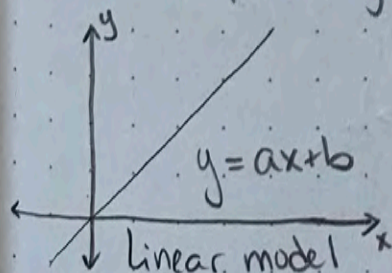 y
y=ax+b
x
Linear model